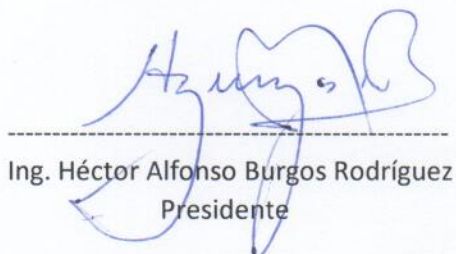 Ing. Héctor Alfonso Burgos Rodríguez
Presidente